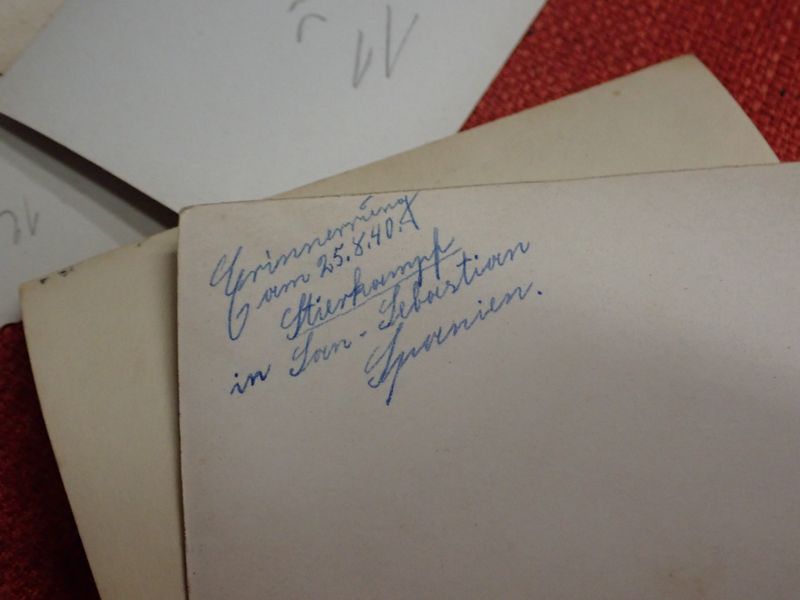 11
12
Erinnerung
am 25.8.40.
Stierkampf
in San-Sebastian
Spanien.